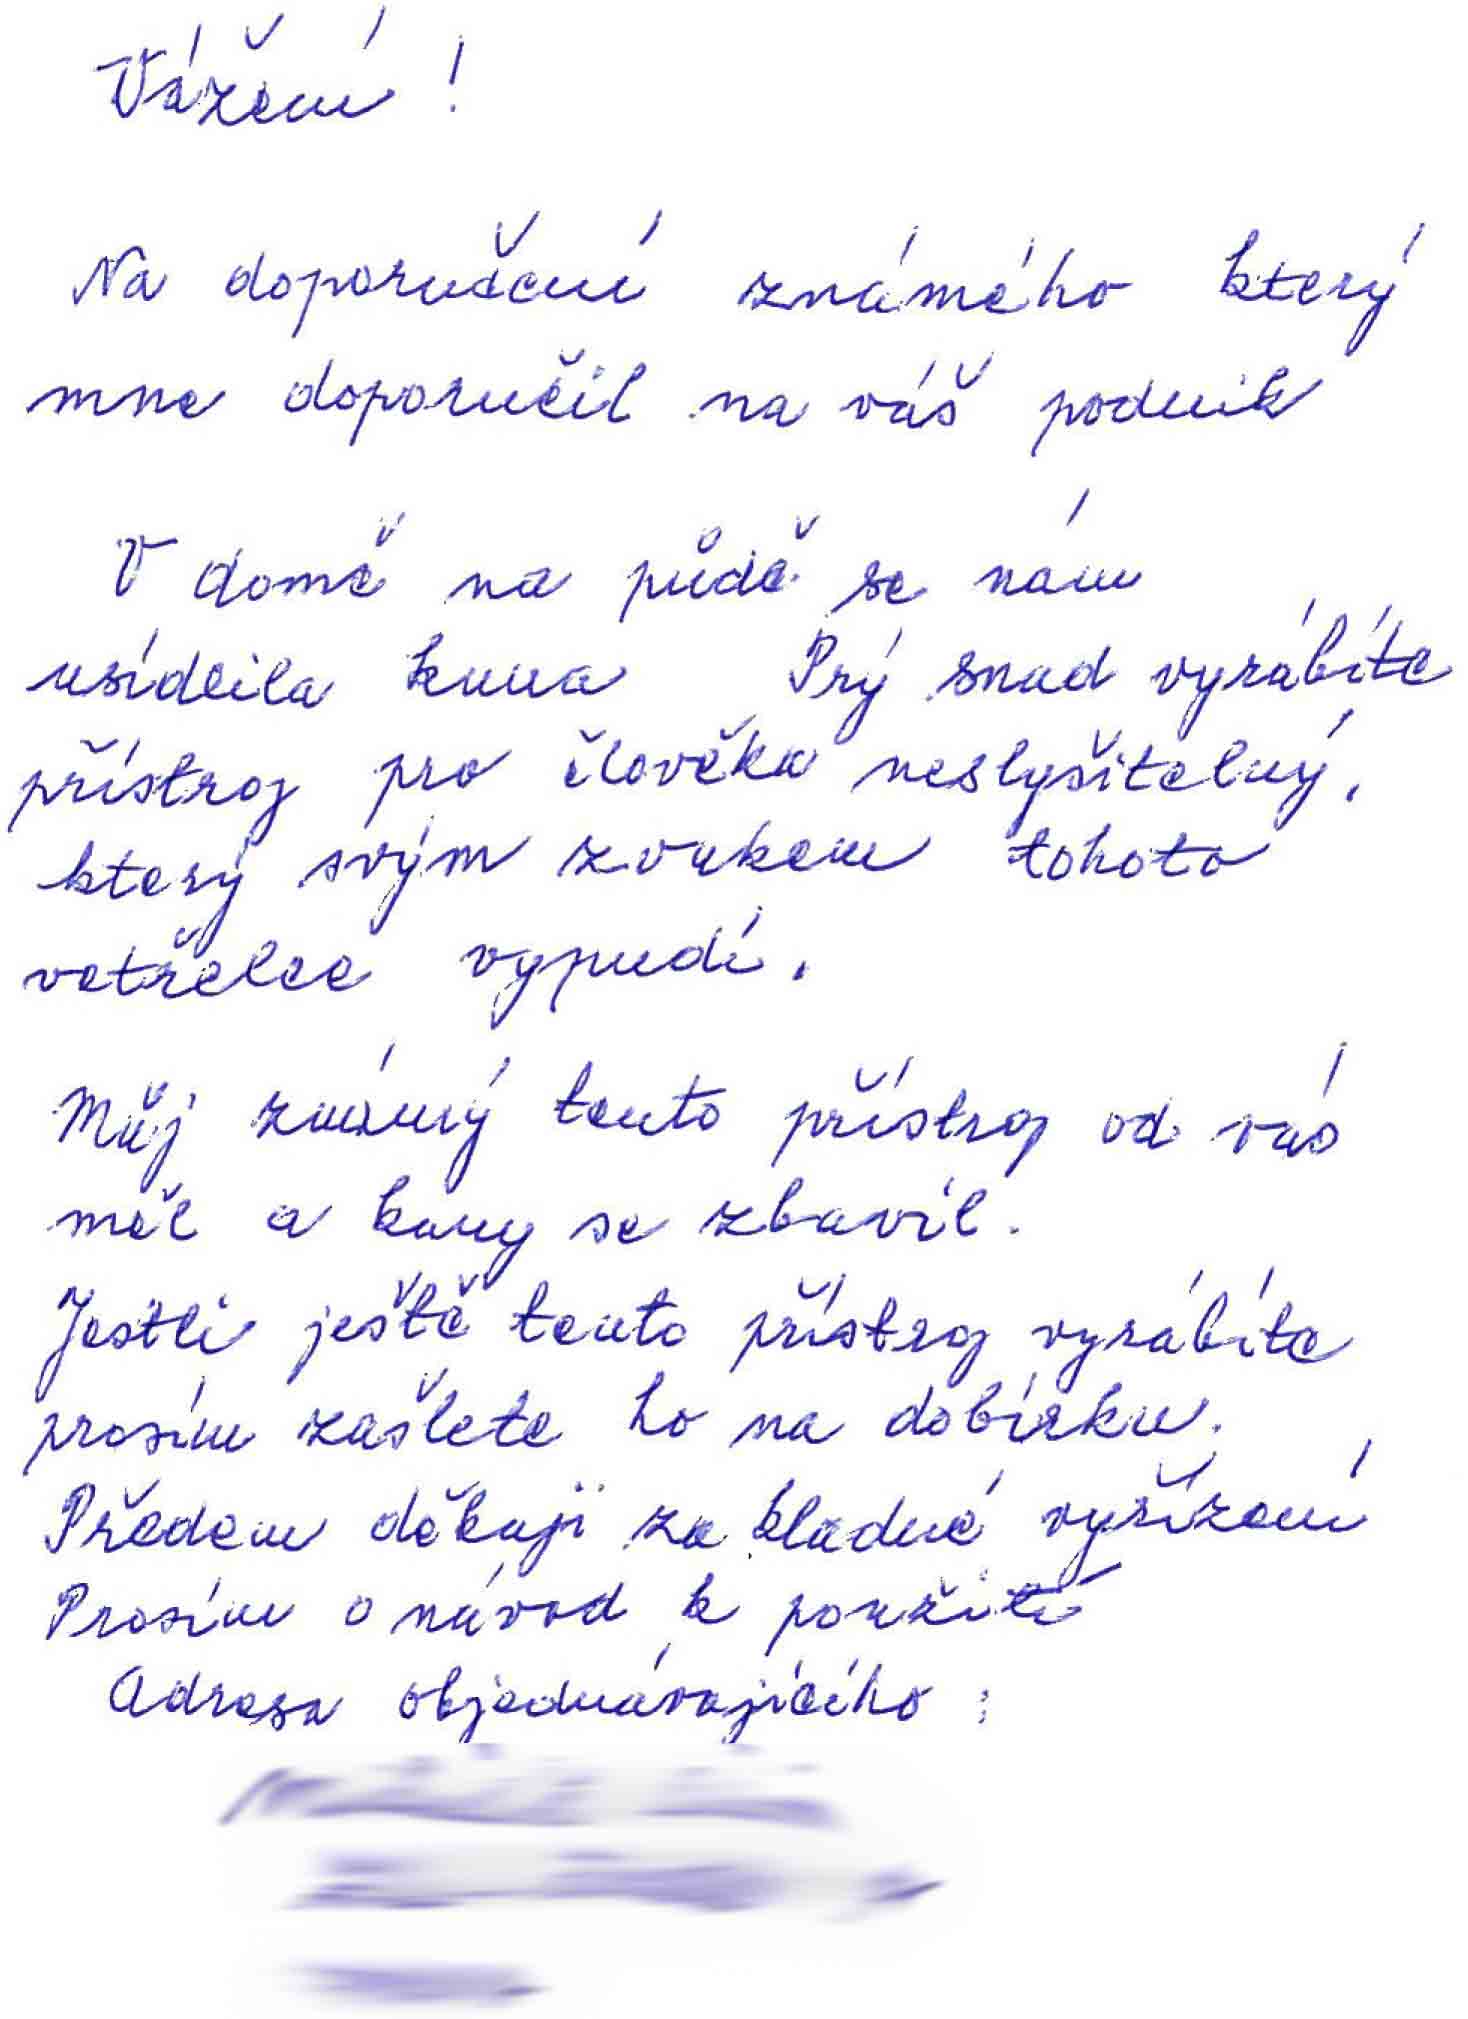 Vážení !
Na doporučení známého který
mne doporučil na váš podnik
V domě na půdě se nám
usídlila kuna Prý snad vyrábíte
přístroj pro člověka neslyšitelný,
který svým zvukem tohoto
vetřelce vypudí.
Můj známý tento přístroj od vás
měl a kuny se zbavil.
Jestli ještě tento přístroj vyrábíte
prosím zašlete ho na dobírku.
Předem děkuji za kladné vyřízení
Prosím o návod k použití
Adresa objednávajícího :